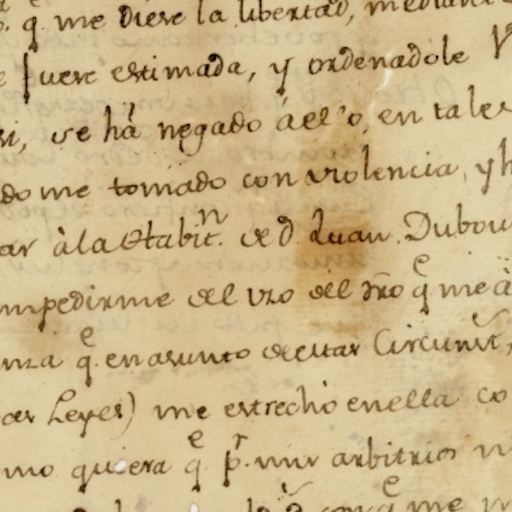 q.e me diere la libertad, mediante
fuere estimada, y ordenadole
se há negado áello, en tales
do me tomado con violencia, y h
ar à la Habit.n de d. Juan Dubou
mpedirme del uzo del dr̃o q.e me à
nza q.e en asunto de estas Circunst.s,
as Leyes) me estrechó en ella co
mo quiera q.e p.r mis arbitrios n
q.e me